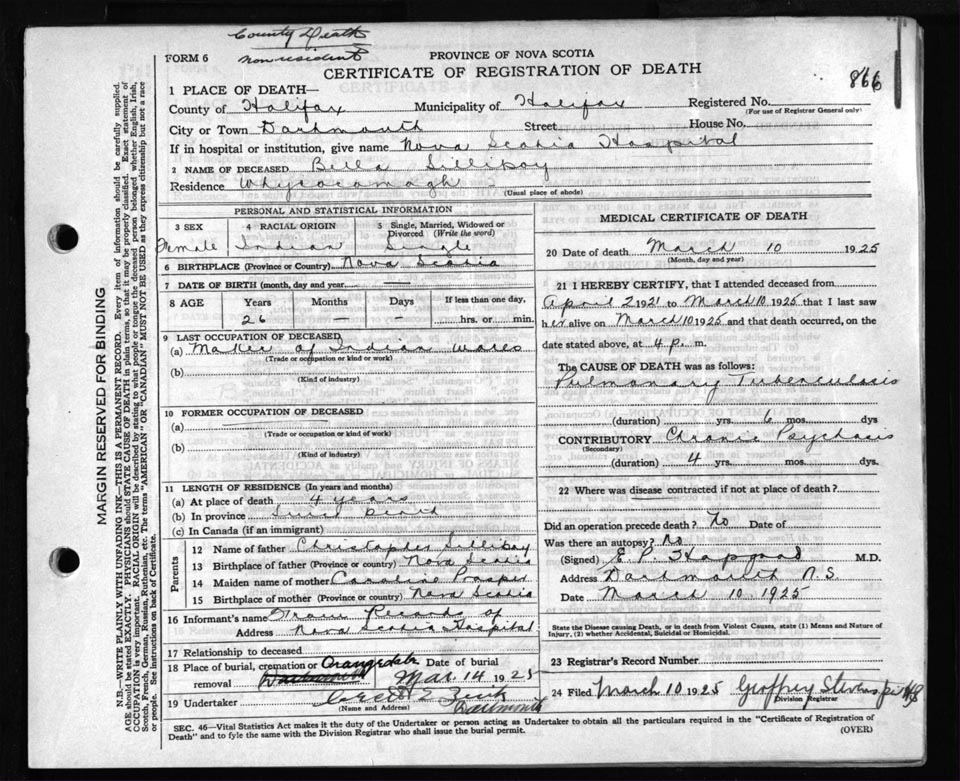 County Death
non resident
FORM 6
PROVINCE OF NOVA SCOTIA
CERTIFICATE OF REGISTRATION OF DEATH
866
1 PLACE OF DEATH—
County of Halifax Municipality of Halifax Registered No.
(For use of Registrar General only)
City or Town Dartmouth Street House No.
If in hospital or institution, give name Nova Scotia Hospital
2 NAME OF DECEASED Bella Silliboy
Residence Whycocomagh
(Usual place of abode)
PERSONAL AND STATISTICAL INFORMATION
3 SEX 4 RACIAL ORIGIN 5 Single, Married, Widowed or Divorced (Write the word)
Female Indian Single
6 BIRTHPLACE (Province or Country) Nova Scotia
7 DATE OF BIRTH (month, day and year) —
8 AGE Years Months Days If less than one day,
26 — — hrs. or min.
9 LAST OCCUPATION OF DECEASED
(a) Maker of Indian wares
(Trade or occupation or kind or work)
(b)
(Kind of industry)
10 FORMER OCCUPATION OF DECEASED
(a)
(Trade or occupation or kind of work)
(b)
(Kind of industry)
11 LENGTH OF RESIDENCE (In years and months)
(a) At place of death 4 years
(b) In province Since Birth
(c) In Canada (if an immigrant)
Parents
12 Name of father Christopher Silliboy
13 Birthplace of father (Province or country) Nova Scotia
14 Maiden name of mother Caroline Prosper
15 Birthplace of mother (Province or country) Nova Scotia
16 Informant's name From Records of
Address Nova Scotia Hospital
17 Relationship to deceased
18 Place of burial, cremation or Orangedale Date of burial
removal Dartmouth Mar. 14 1925
19 Undertaker
(Name and Address) Dartmouth
MEDICAL CERTIFICATE OF DEATH
20 Date of death March 10 1925
(Month, day and year)
21 I HEREBY CERTIFY, that I attended deceased from
April 2 1921 to March 10 1925 that I last saw
her alive on March 10 1925 and that death occurred, on the
date stated above, at 4 p. m.
The CAUSE OF DEATH was as follows:
Pulmonary Tuberculosis
(duration) yrs. 6 mos. dys
CONTRIBUTORY Chronic Psychosis
(Secondary)
(duration) 4 yrs. mos. dys.
22 Where was disease contracted if not at place of death?
Did an operation precede death? No Date of
Was there an autopsy? No
(Signed) E. P. M.D.
Address Dartmouth N.S.
Date March 10 1925
State the Disease causing Death, or in death from Violent Causes, state (1) Means and Nature of
Injury, (2) whether Accidental, Suicidal or Homicidal.
23 Registrar's Record Number
24 Filed March 10 1925 Geoffrey Stevens
Division Registrar
SEC. 46—Vital Statistics Act makes it the duty of the Undertaker or person acting as Undertaker to obtain all the particulars required in the "Certificate of Registration of
Death" and to fyle the same with the Division Registrar who shall issue the burial permit.
(OVER)
MARGIN RESERVED FOR BINDING
N.B.—WRITE PLAINLY WITH UNFADING INK—THIS IS A PERMANENT RECORD. Every item of information should be carefully supplied.
AGE should be stated EXACTLY. PHYSICIANS should STATE CAUSE OF DEATH in plain terms, so that it may be properly classified. Exact statement of
OCCUPATION is very important. RACIAL ORIGIN will be described by stating to what people or tongue the deceased person belonged whether English, Irish,
Scotch, French, German, Russian, Ruthenian, etc. The terms "AMERICAN" OR "CANADIAN" MUST NOT BE USED as they express citizenship but not a race
or people. See instructions on back of Certificate.